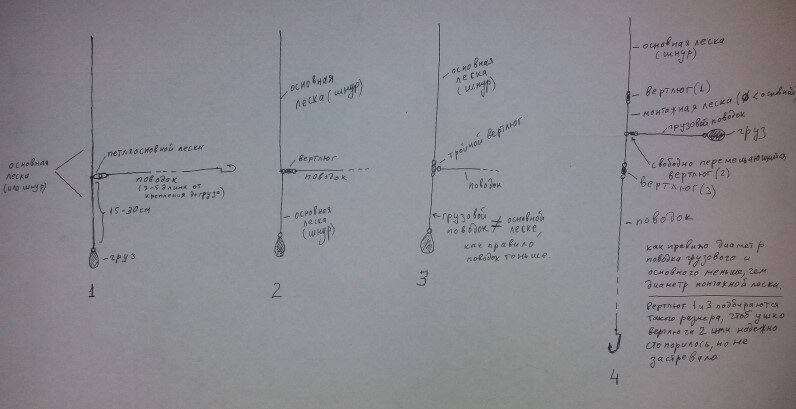 основная
леска
(или шнур)
петля основной лески
поводок
(3-5 длина от
крепления до груза)
15-30см
груз
1
основная
леска (шнур)
вертлюг
поводок
основная
леска
(шнур)
2
основная
леска
(шнур)
тройной вертлюг
поводок
грузовой
поводок ≠ основной
леске,
как правило
поводок тоньше.
3
основная леска
(шнур)
вертлюг (1)
монтажная леска (Ø < основной
грузовой поводок
груз
свободно перемещающийся
вертлюг (2)
вертлюг (3)
поводок
как правило диаметр
поводка грузового и
основного меньше, чем
диаметр монтажной лески.
Вертлюг 1 и 3 подбираются
такого размера, чтоб ушко
вертлюга 2 надежно
стопорилось, но не
застревало
4